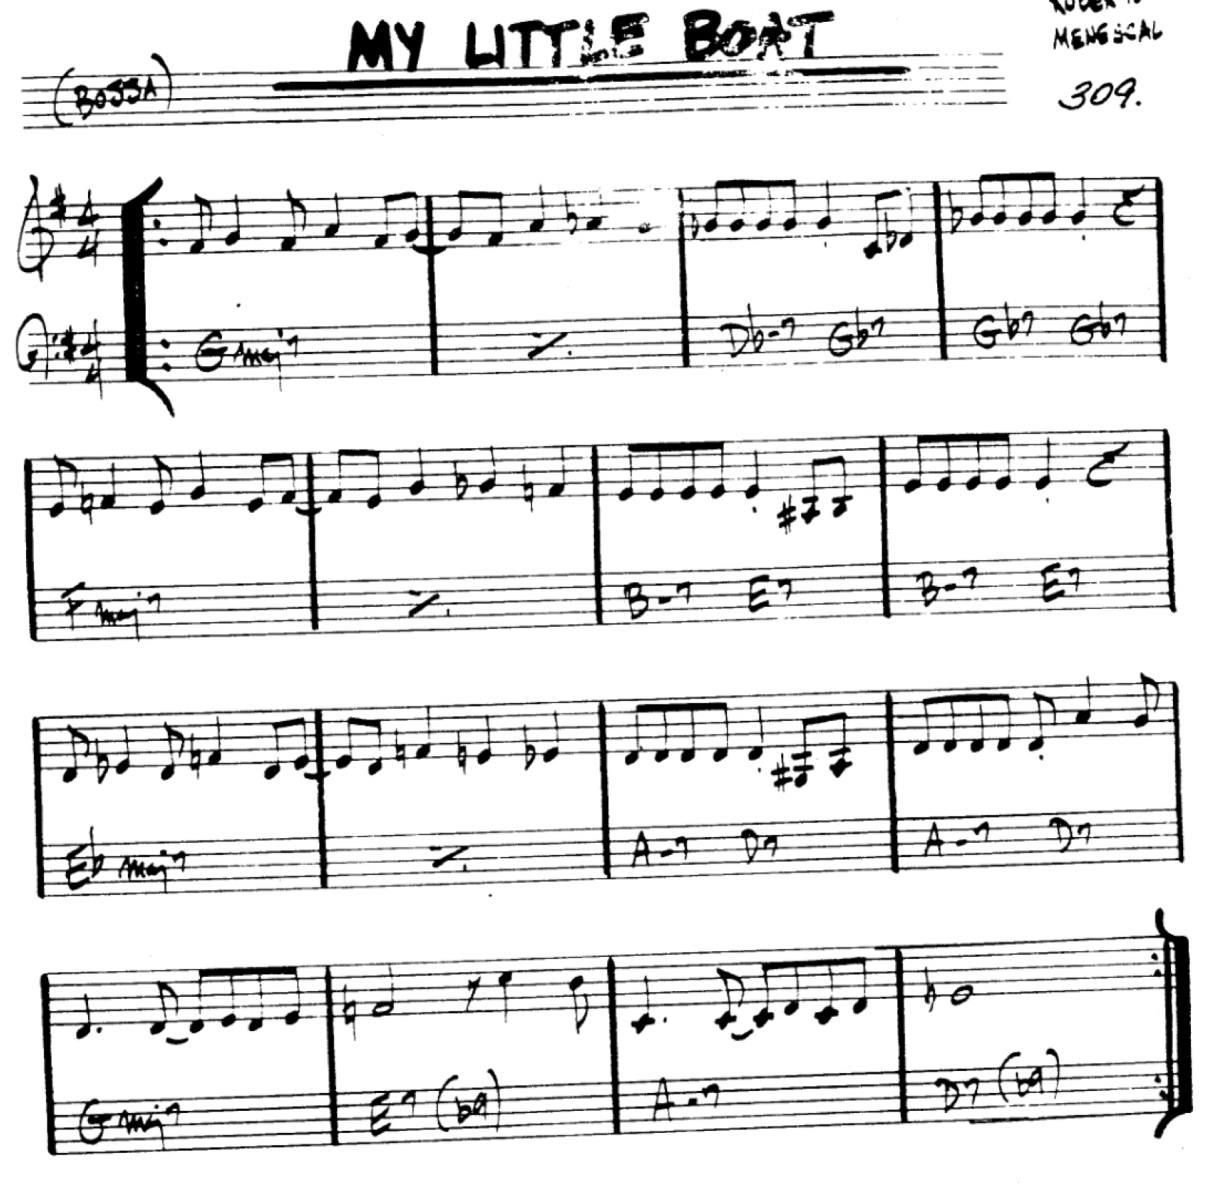 MY LITTLE BOAT
MENESCAL
(BOSSA)
309.
4 4
4 4
Gmaj7 ٪ Db-7 Gb7 Gb7 Gb7
Fmaj7 ٪ B-7 E7 B-7 E7
Ebmaj7 ٪ A-7 D7 A-7 D7
Gmaj7 E7(b9) A-7 D7(b9)